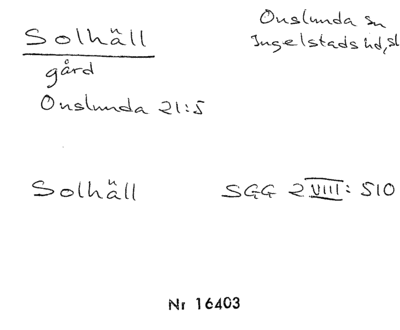 Solhäll
Onslunda sn
Ingelstads hd, sk
gård
Onslunda 21:5
Solhäll
SGG 2 VIII: 510
Nr 16403